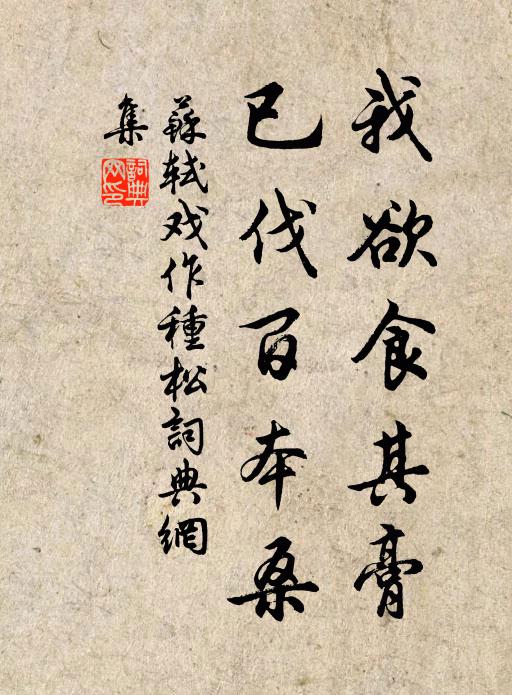 我欲食其膏
已伐百本桑
蘇轼戏作種松詞典網
集
詞典
网印